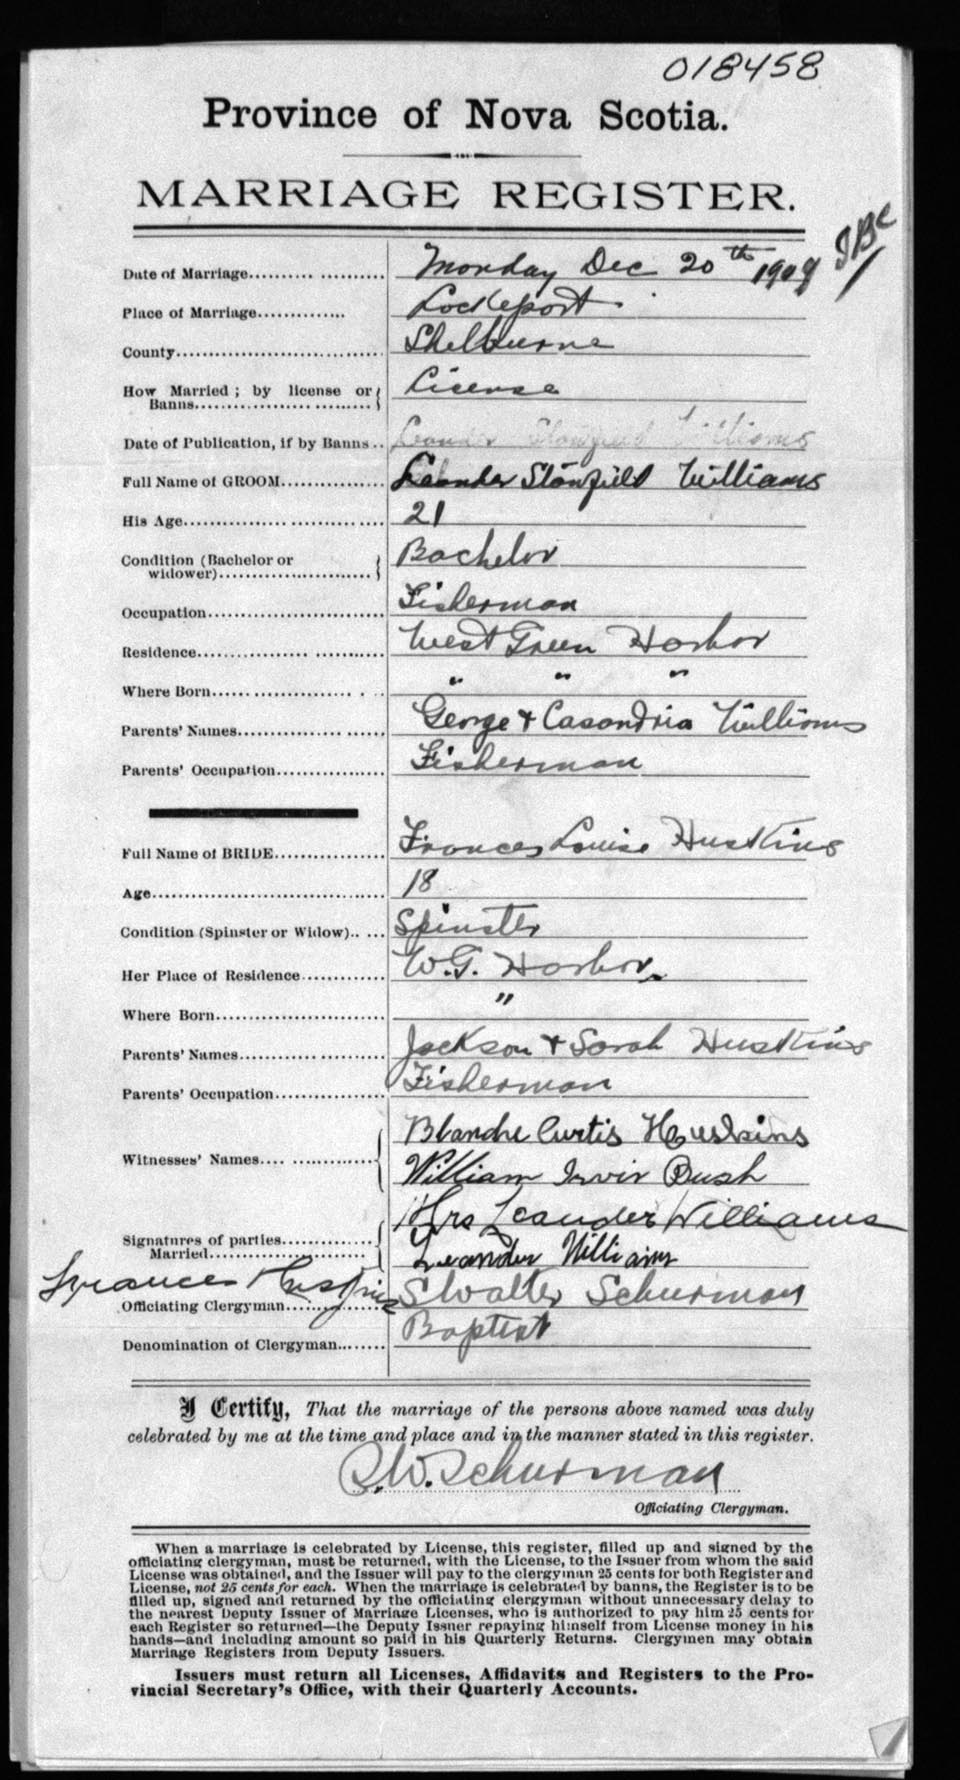 018458
Province of Nova Scotia.
MARRIAGE REGISTER.
Date of Marriage.......... Monday Dec 20th 1909
Place of Marriage.............. Lockeport
County.............................. Shelburne
How Married ; by license or Banns.......................... License
Date of Publication, if by Banns .. Leander Stanfield Williams
Full Name of GROOM............... Leander Stanfield Williams
His Age............................. 21
Condition (Bachelor or widower)...................... Bachelor
Occupation.......................... Fisherman
Residence........................... West Green Harbor
Where Born...................... " " "
Parents' Names..................... George & Casandria Williams
Parents' Occupation................ Fisherman
Full Name of BRIDE................ Frances Louise Huskins
Age................................. 18
Condition (Spinster or Widow).. ... Spinster
Her Place of Residence............ W.G. Harbor
Where Born......................... "
Parents' Names..................... Jackson & Sarah Huskins
Parents' Occupation................ Fisherman
Blanche Curtis Huskins
Witnesses' Names.... .............. William Irvir Bush
Mrs Leander Williams
Signatures of parties Married...................... Leander Williams
Frances Huskins
Officiating Clergyman............... S Walter Schurman
Denomination of Clergyman........ Baptist
I Certify, That the marriage of the persons above named was duly
celebrated by me at the time and place and in the manner stated in this register.
S. W. Schurman
Officiating Clergyman.
When a marriage is celebrated by License, this register, filled up and signed by the
officiating clergyman, must be returned, with the License, to the Issuer from whom the said
License was obtained, and the Issuer will pay to the clergyman 25 cents for both Register and
License, not 25 cents for each. When the marriage is celebrated by banns, the Register is to be
filled up, signed and returned by the officiating clergyman without unnecessary delay to
the nearest Deputy Issuer of Marriage Licenses, who is authorized to pay him 25 cents for
each Register so returned—the Deputy Issuer repaying himself from License money in his
hands—and including amount so paid in his Quarterly Returns. Clergymen may obtain
Marriage Registers from Deputy Issuers.
Issuers must return all Licenses, Affidavits and Registers to the Pro-
vincial Secretary's Office, with their Quarterly Accounts.